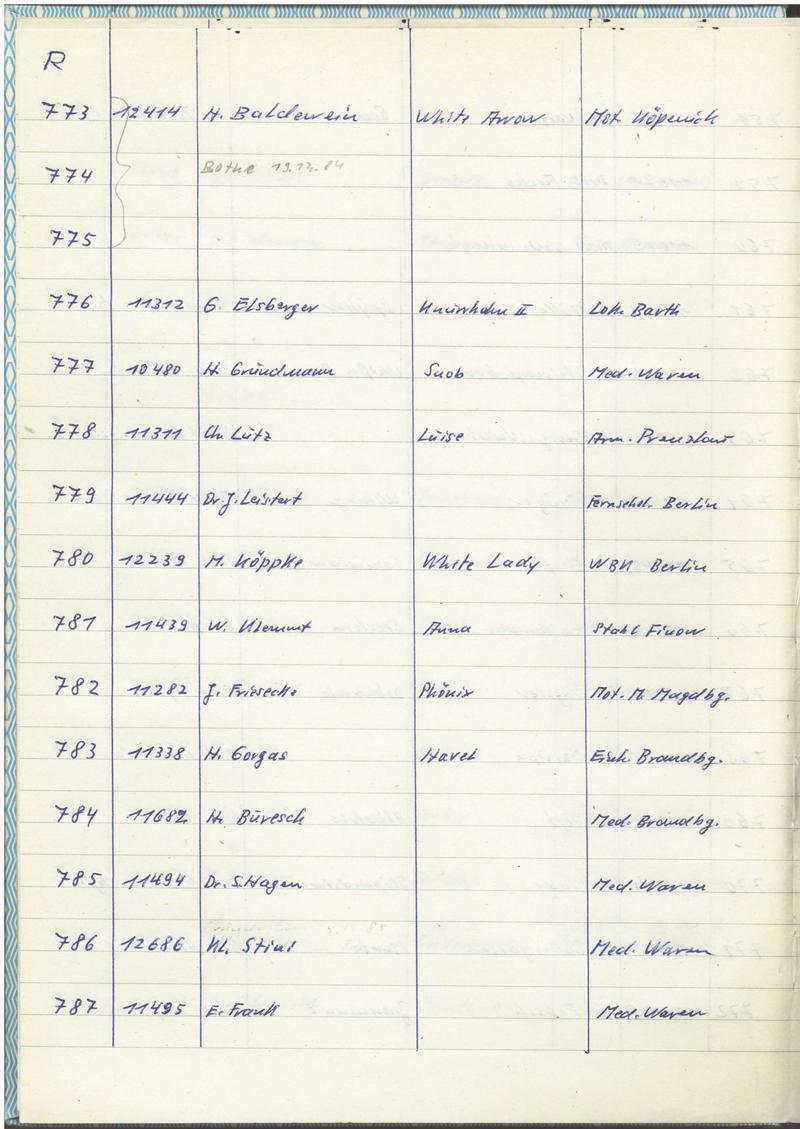 R
773 12414 H. Baldewein White Arrow Mot. Köpenick
774 Bothe 19.12.84
775
776 11312 G. Elsberger Knurrhahn II Lok. Barth
777 10480 H. Gründmann Snob Med. Waren
778 11311 Ch. Lütz Luise Arm. Prenzlau
779 11444 Dr. J. Leistert Fernsehel. Berlin
780 12239 M. Köppke White Lady WBK Berlin
781 11439 W. Klemmt Anna Stahl Finow
782 11282 J. Friesecke Phönix Mot. M. Magdbg.
783 11338 H. Gorgas Havel Einh. Brandbg.
784 11682 H. Büresch Med. Brandbg.
785 11494 Dr. S. Hagen Med. Waren
786 12686 Kl. Med. Waren
787 11495 E. Frank Med. Waren